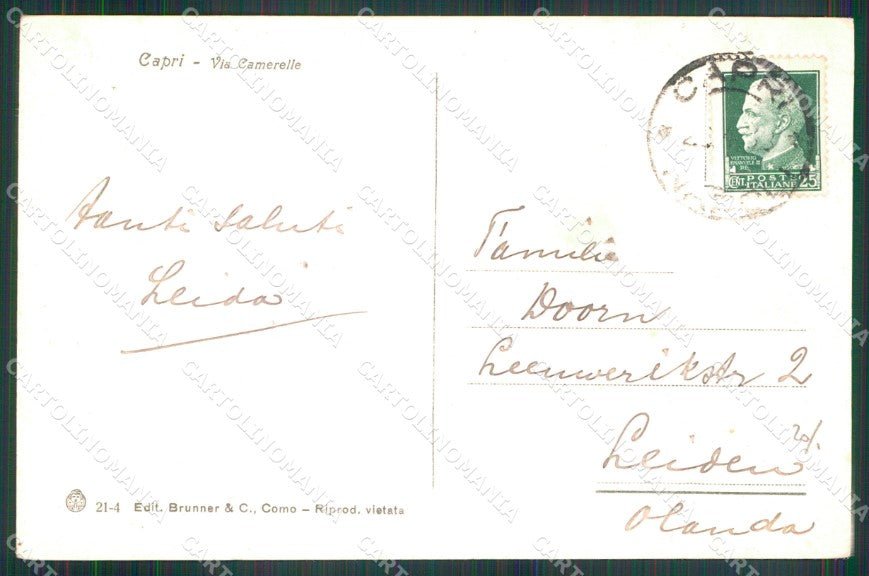 Capri - Via Camerelle
CAPRI
VITTORIO
EMANUELE III
CENT. POSTE 25
ITALIANE
tanti saluti
Leida
Familie
Doorn
Leeuwerikstr 2
Leiden
Olanda
21-4 Edit. Brunner & C., Como – Riprod. vietata
CARTOLINOMANIA